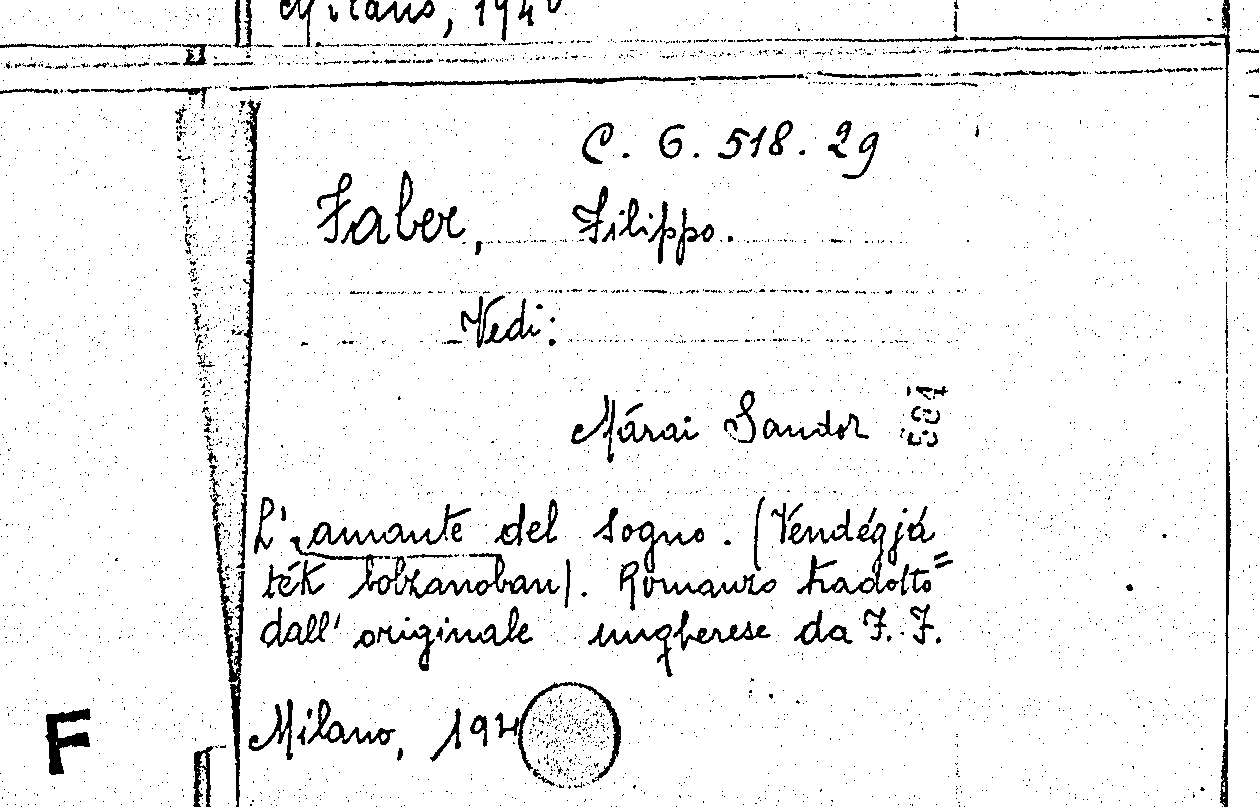 Milano, 194
C. G. 518. 29
Faber, Filippo.
Vedi:
Márai Sandor
504
L'amante del sogno. (Vendégjá=
ték bolzanoban). Romanzo tradotto
dall' originale ungherese da F. F.
Milano, 194
F